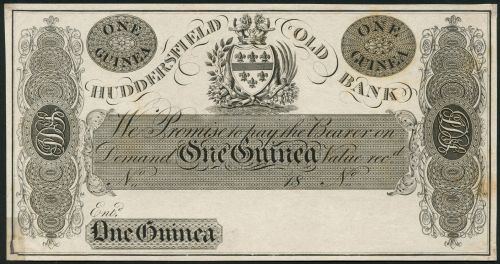 ONE GUINEA
ONE GUINEA
HUDDERSFIELD OLD BANK
We Promise to pay the Bearer on
Demand One Guinea Value rec.d
No. 18 No.
Ent.d
One Guinea